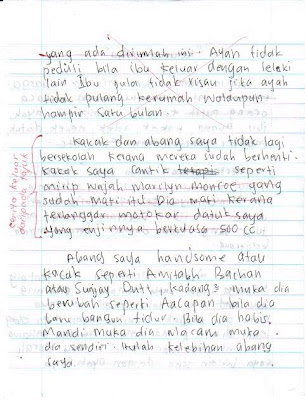 yang ada dirumah ini. Ayah tidak
peduli bila ibu keluar dengan lelaki
lain. Ibu pula tidak risau jika ayah
tidak pulang kerumah walaupun
hampir satu bulan.
Kakak dan abang saya tidak lagi
bersekolah kerana mereka sudah berhenti.
Kakak saya cantik tetapi seperti
mirip wajah marilyn monroe yang
sudah mati itu. Dia mati kerana
terlanggar motokar datuk saya
yang enjinnya berkuasa 500 cc
Abang saya handsome atau
kacak seperti Amitabh Bachan
atau Sunjay Dutt. Kadang2 muka dia
berubah seperti Aacapan bila dia
baru bangun tidur. Bila dia habis
mandi muka dia macam muka
dia sendiri. Itulah kelebihan abang
saya.
Cerita keluar
daripada tajuk